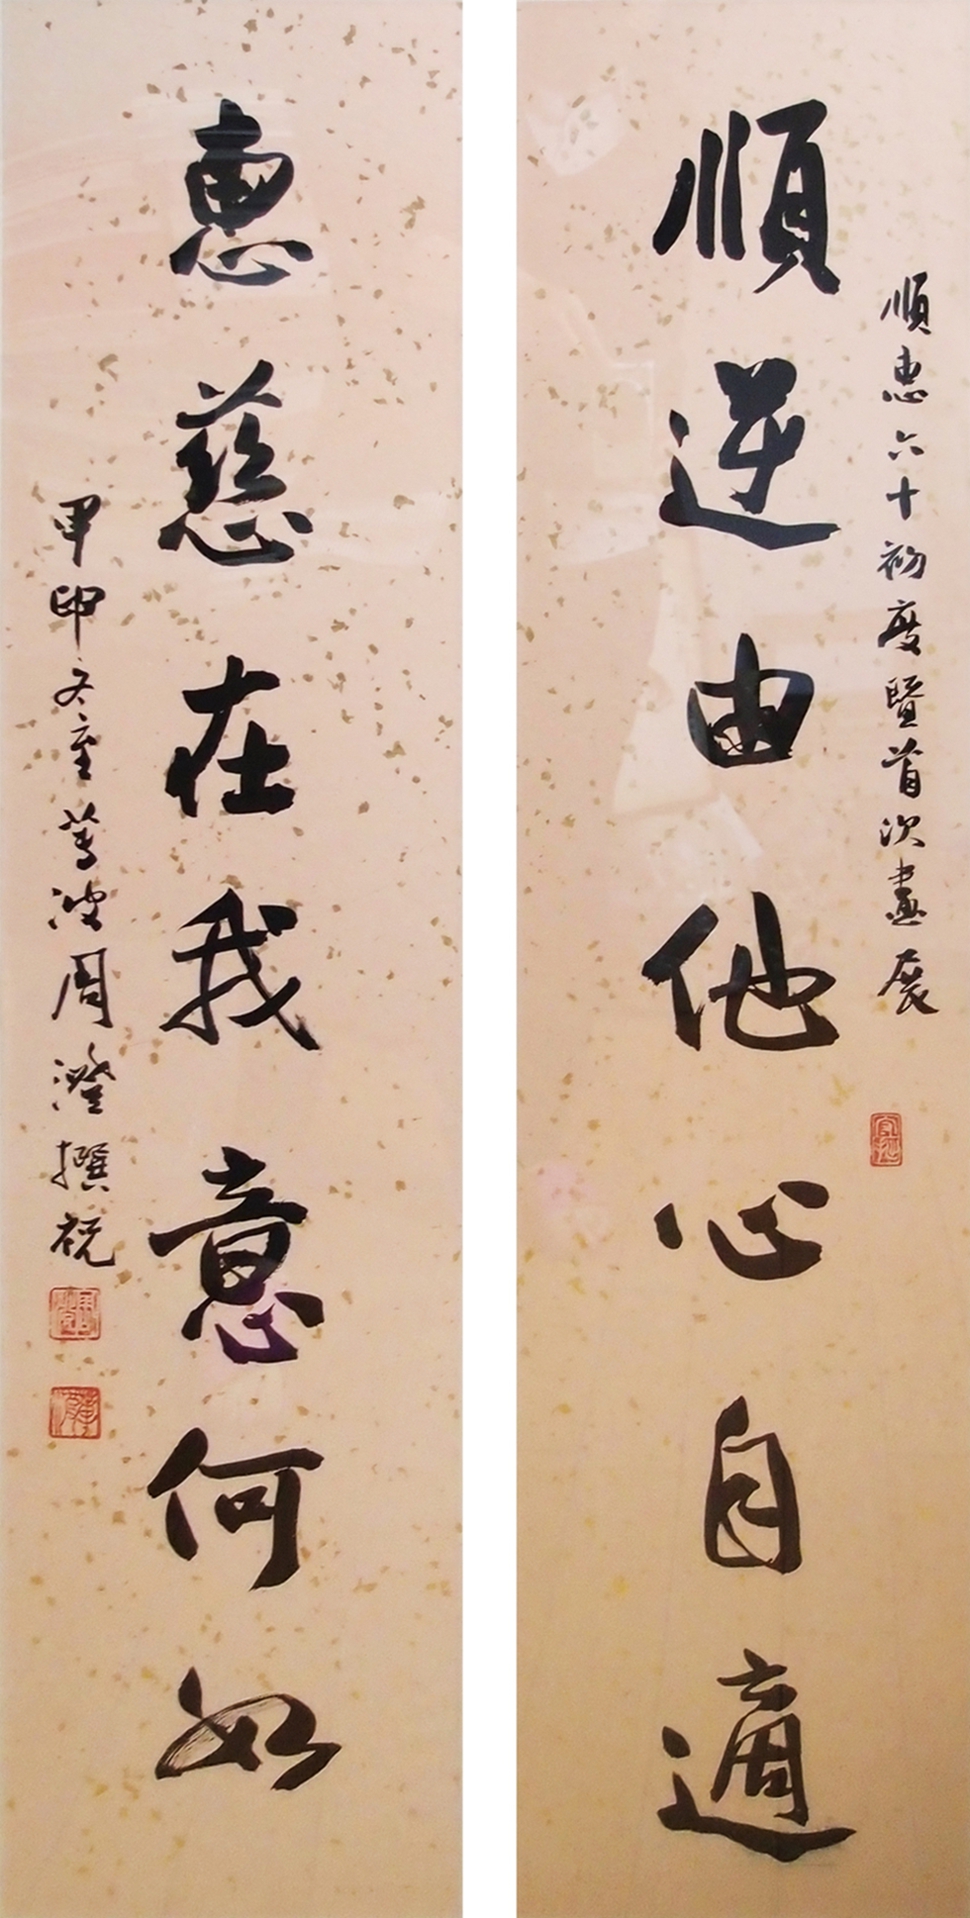 順惠六十初度暨首次畫展
順逆由他心自適
惠慈在我意何如
甲申冬至蓴波周澄撰祝